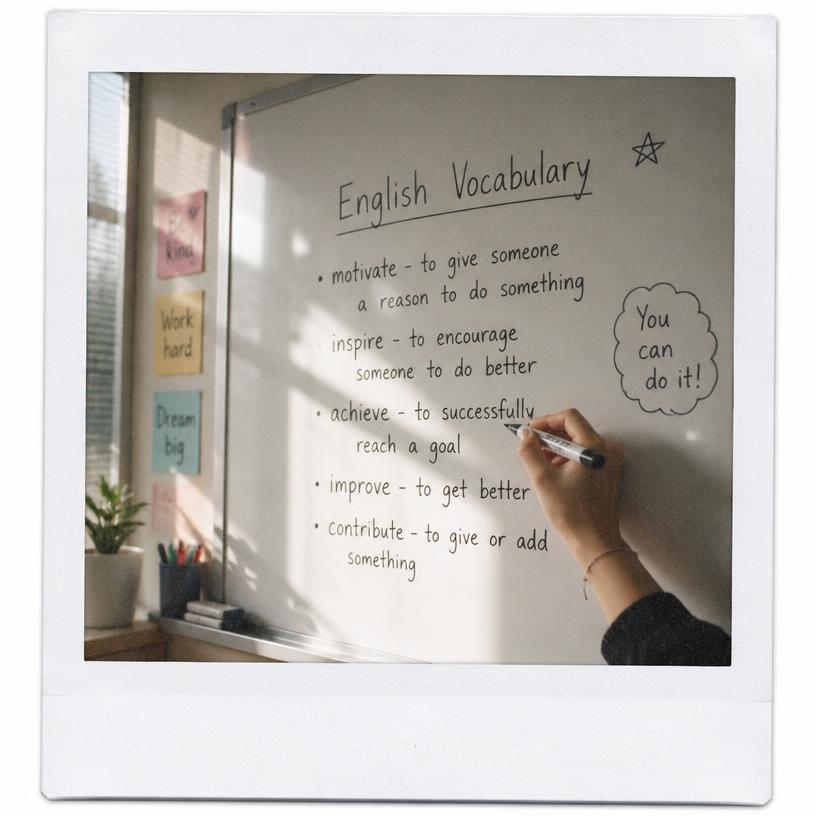 English Vocabulary
• motivate - to give someone
a reason to do something
inspire - to encourage
someone to do better
• achieve - to successfully
reach a goal
• improve - to get better
• contribute - to give or add
something
You
can
do it!
Be
kind
Work
hard
Dream
big